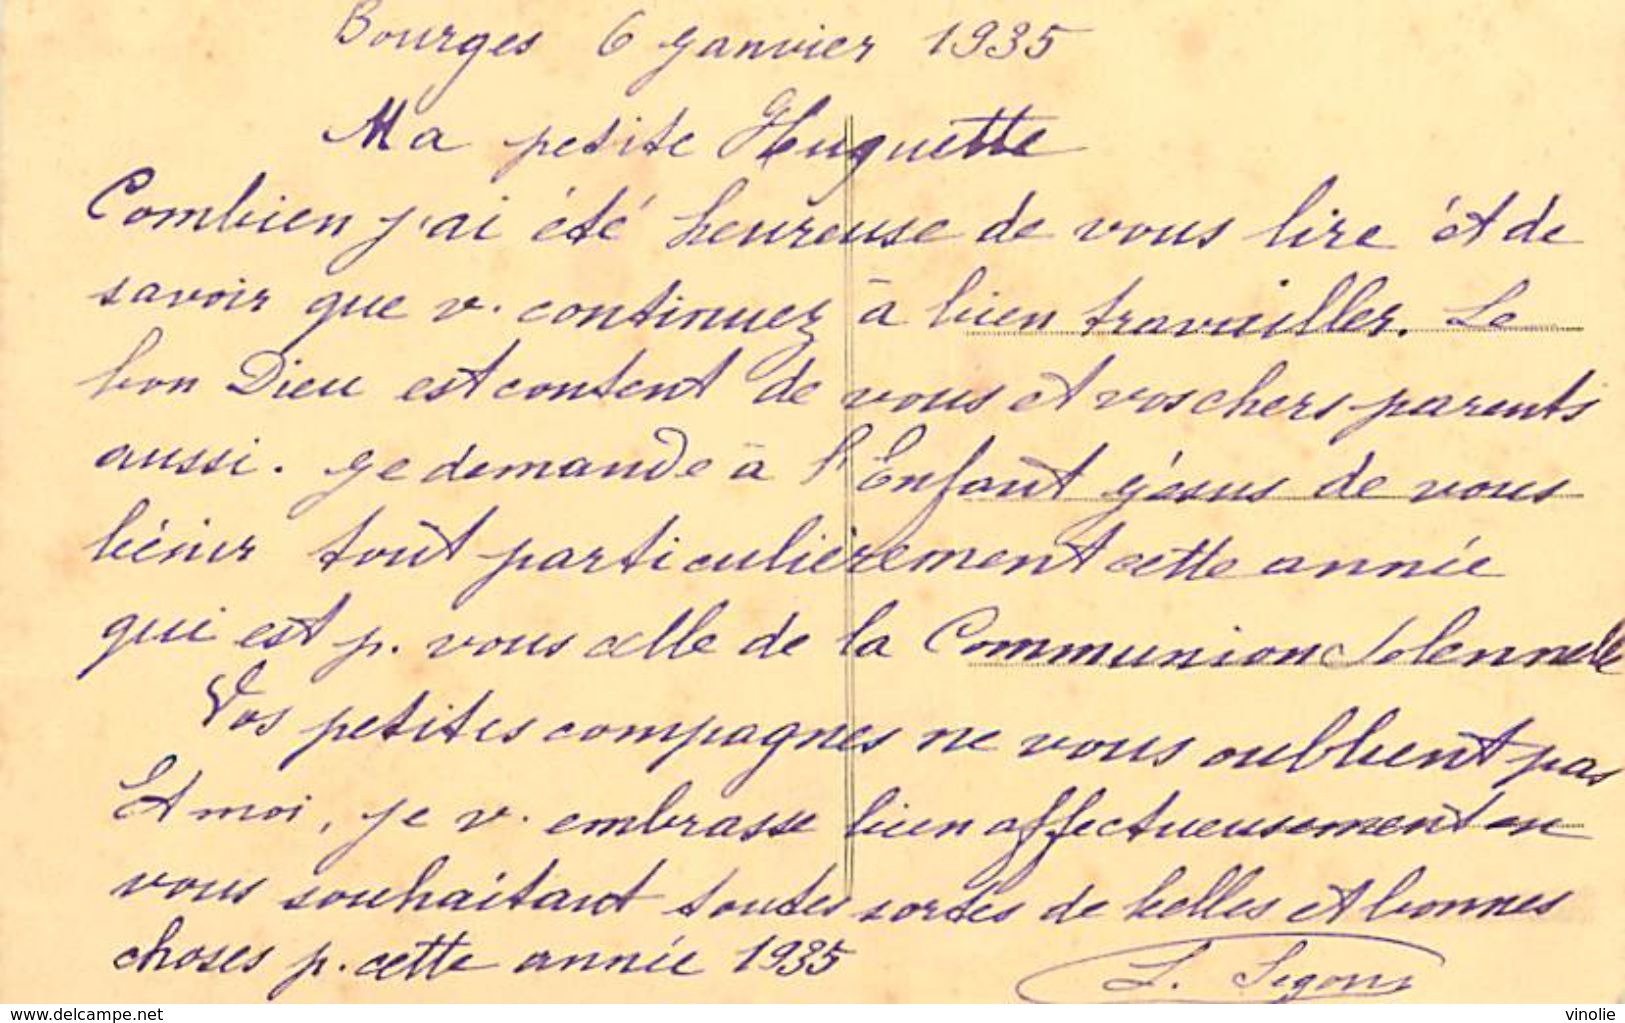 Bourges 6 Janvier 1935
Ma petite Huguette
Combien j'ai été heureuse de vous lire et de
savoir que v. continuez à bien travailler. Le
bon Dieu est content de vous et vos chers parents
aussi. Je demande à l'Enfant Jésus de vous
bénir tout particulièrement cette année
qui est p. vous celle de la Communion Solennelle
Vos petites compagnes ne vous oublient pas
Et moi, je v. embrasse bien affectueusement en
vous souhaitant toutes sortes de belles et bonnes
choses p. cette année 1935
L. Segons
www.delcampe.net
vinolie